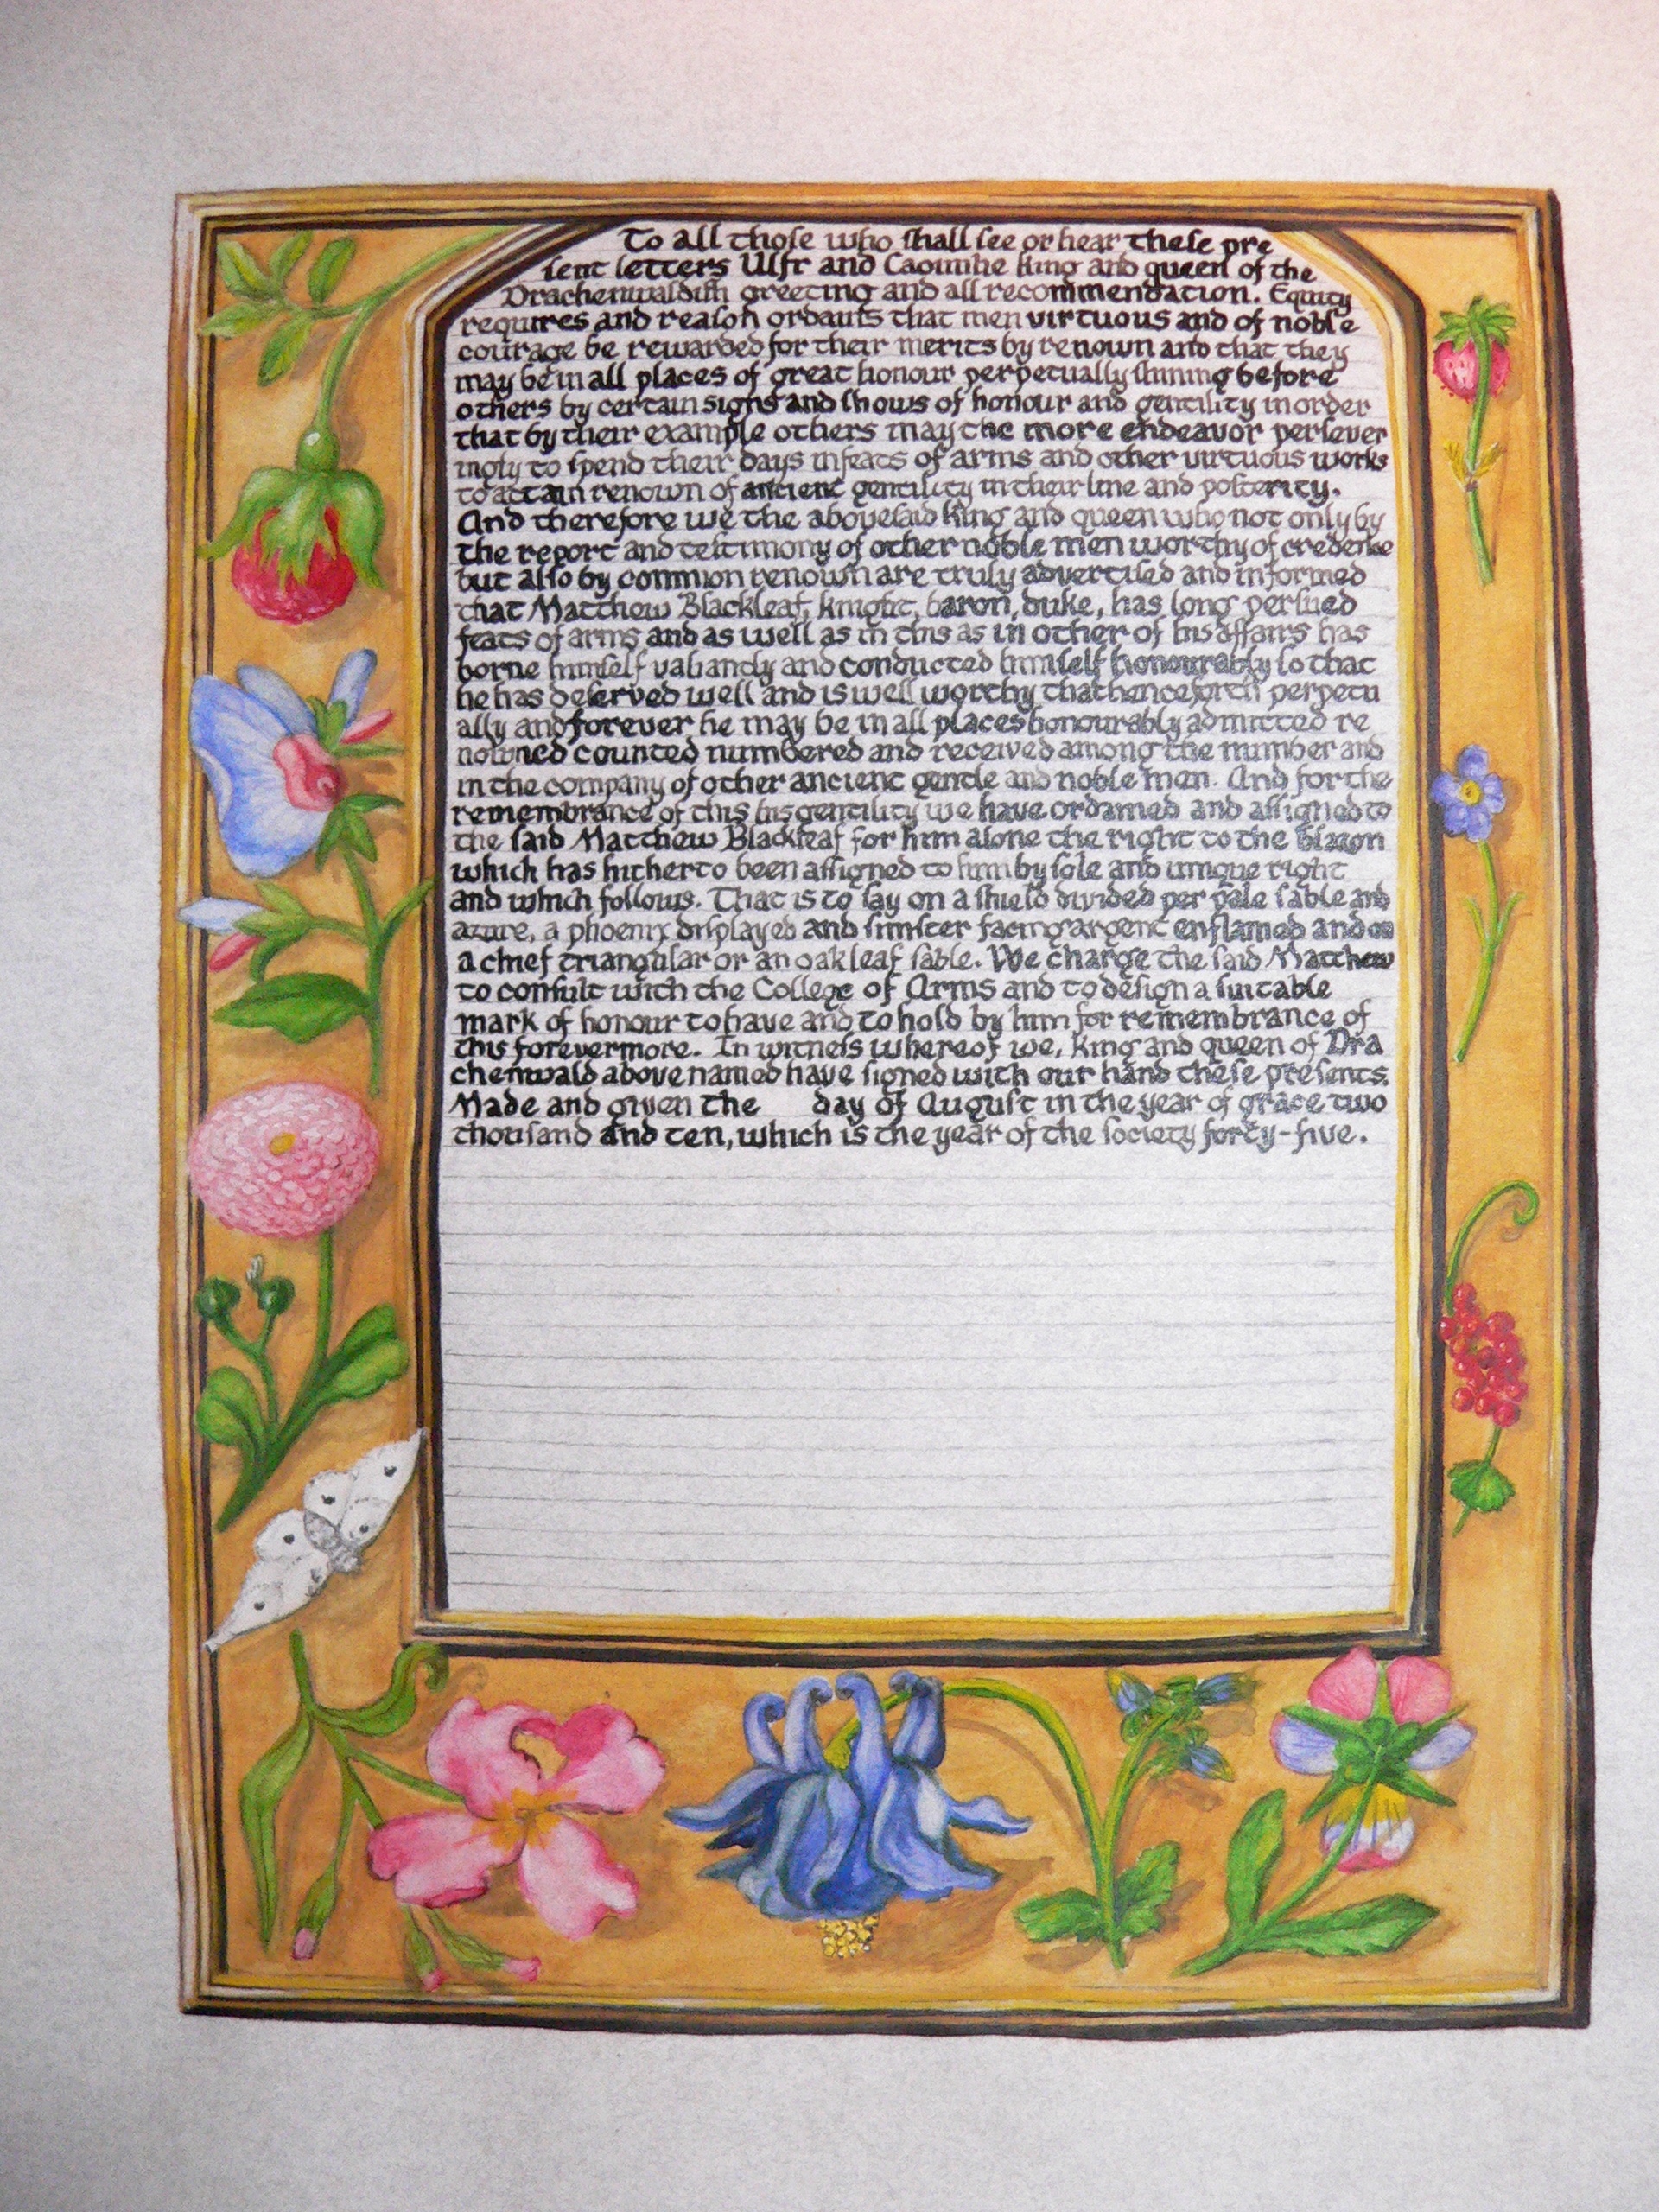 To all those who shall see or hear these pre
sent letters Ulfr and Caoimhe king and queen of the
Drachenwaldish greeting and all recommendation. Equity
requires and reason ordains that men virtuous and of noble
courage be rewarded for their merits by renown and that they
may be in all places of great honour perpetually shining before
others by certain signs and shows of honour and gentility in order
that by their example others may the more endeavor persever
ingly to spend their days in feats of arms and other virtuous works
to attain renown of ancient gentility in their line and posterity.
And therefore we the abovesaid king and queen who not only by
the report and testimony of other noble men worthy of credence
but also by common renown are truly advertised and informed
that Matthew Blackleaf, knight, baron, duke, has long persued
feats of arms and as well as in this as in other of his affairs has
borne himself valiantly and conducted himself honourably so that
he has deserved well and is well worthy that henceforth perpetu
ally and forever he may be in all places honourably admitted re
nowned counted numbered and received among the number and
in the company of other ancient gentle and noble men. And for the
remembrance of this his gentility we have ordained and assigned to
the said Matthew Blackleaf for him alone the right to the blazon
which has hitherto been assigned to him by sole and unique right
and which follows. That is to say on a shield divided per pale sable and
azure, a phoenix displayed and sinister facing argent enflamed and on
a chief triangular or an oak leaf sable. We charge the said Matthew
to consult with the College of Arms and to design a suitable
mark of honour to have and to hold by him for remembrance of
this forevermore. In witness whereof we, king and queen of Dra
chenwald above named have signed with our hand these presents.
Made and given the day of August in the year of grace two
thousand and ten, which is the year of the society forty-five.